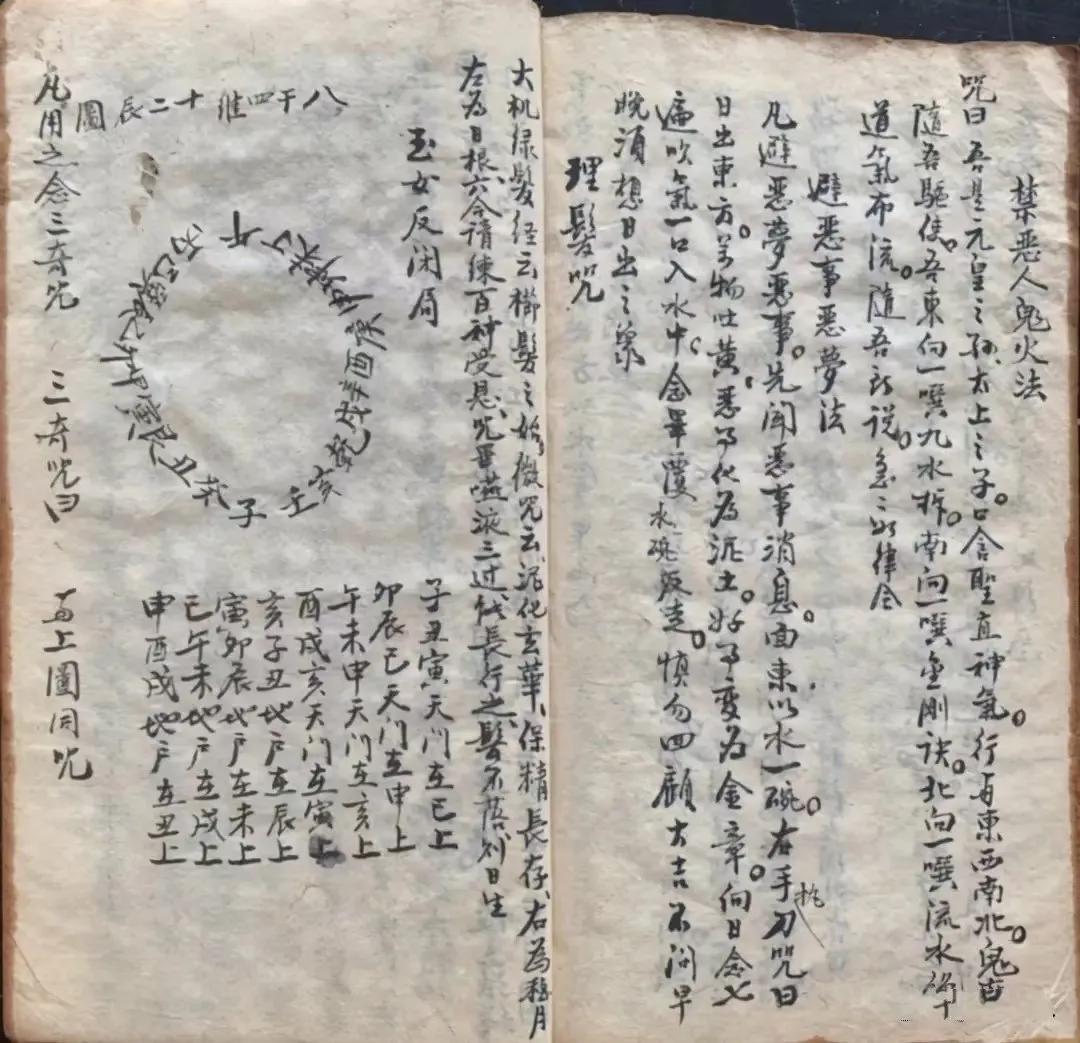 禁恶人鬼火法
咒曰 吾是元皇之孫。太上之子。口含聖直神氣。行与東西南北。鬼
隨吾驅使。吾東向一噀九水柝。南向一噀金剛訣。北向一噀流水
道氣布流。隨吾所說。急々如律令
避恶事恶夢法
凡避恶夢恶事。先聞恶事消息。面東以水一碗。右手抱刀咒曰
日出東方。万物吐黄。恶了化为泥土。好了变为金章。向日念七
遍吹氣一口入水中。念畢覆水碗孜走。慎勿四顧大吉不問早
晚須想日出之象
理髮咒
大机绿髮经云櫛髮之始。微咒云泥化玄華、保精長存、右为月
左为日根、六合请練百神受恩、咒畢嚥液三过、長行之髮不落、日生
玉女反闭局
八干四維十二辰圖
午丁未坤申庚酉辛戌乾亥壬子癸丑艮寅甲卯乙辰巽巳丙
子丑寅天门在巳上
卯辰巳天门在申上
午未申天门在亥上
酉戌亥天门在寅上
亥子丑地户在辰上
寅卯辰地户在未上
巳午未地户在戌上
申酉戌地户在丑上
凡用之念三奇咒 三奇咒曰 与上圖同咒